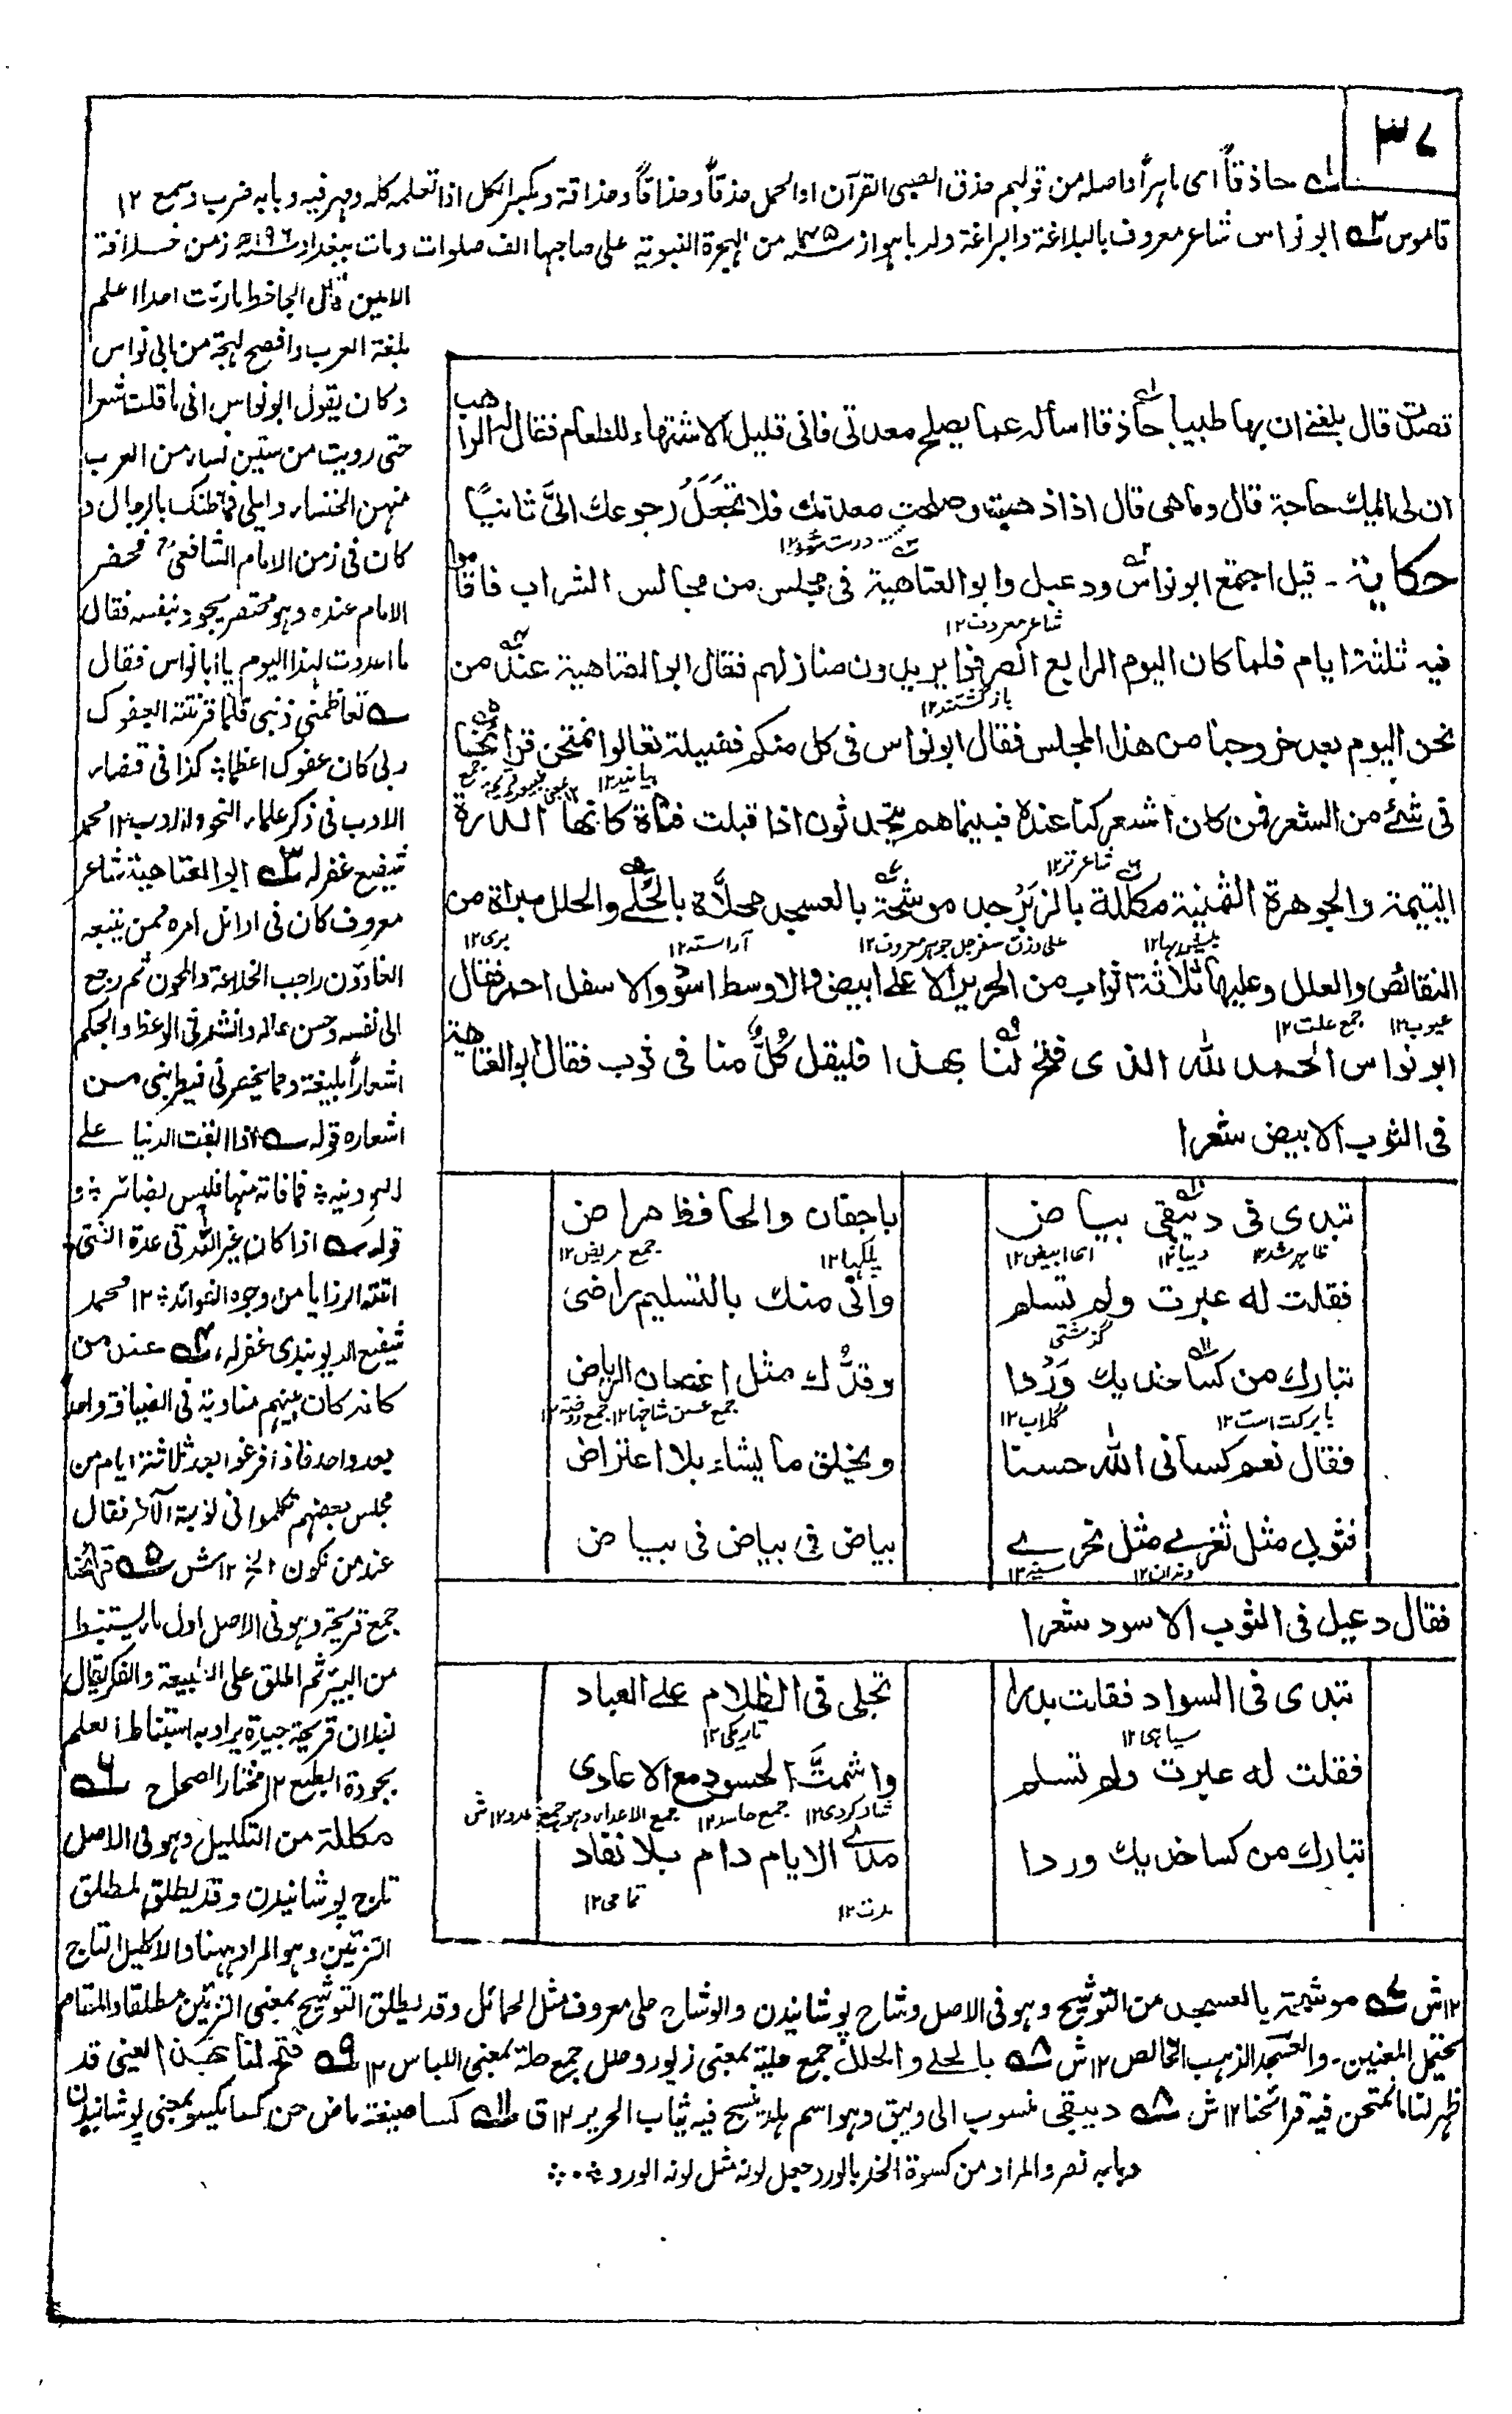 ٣٧
١ حاذقاً ای ماہراً واصلہ من قولہم حذق الصبی القرآن او العمل حذقاً وحذاقاً وحذاقة ویکسر الکل اذا تعلمہ کلہ ومہر فیہ وبابہ ضرب وسمع ١٢
قاموس ٢ ابو نواس شاعر معروف بالبلاغة والبراعة ولد باہواز سنہ ١٤٥ من الہجرة النبویة علی صاحبہا الف صلوات ومات ببغداد سنہ ١٩٦ زمن خلافة
الامین قال الجاحظ ما رئیت احدا اعلم
بلغة العرب وافصح لہجة من ابی نواس
وکان یقول ابو نواس انی ما قلت شعرا
حتی رویت من ستین نساء من العرب
منہن الخنساء ولیلی فما ظنک بالرجال و
کان فی زمن الامام الشافعیؒ فحضر
الامام عندہ وہو محتضر یجود بنفسہ فقال
ما اعددت لہذا الیوم یا ابا نواس فقال
تعاظمنی ذنبی فلما قرنتہ بعفوک
ربی کان عفوک اعظما کذا فی قضاء
الادب فی ذکر علماء النحو والادب ١٢ محمد
شفیع غفرلہ ٣ ابو العتاہیة شاعر
معروف کان فی اوائل امرہ ممن یتبعہ
الغاوون راجب الخلاعة والمجون ثم رجع
الی نفسہ وحسن حالہ وانشد فی الوعظ والحکم
اشعاراً بلیغة ومما یحضرنی فیطربنی من
اشعارہ قولہ اذا ابقت الدنیا علی
المرء دینہ فما فاتہ منہا فلیس بضائر و
قولہ اذا کان غیر اللہ فی عدة الفتی
اتتہ الرزایا من وجوہ الفوائد ١٢ محمد
شفیع الدیوبندی غفرلہ ٤ عند من
کانہ کان بینہم مناوبة فی الضیافة واحدا
بعد واحد فاذا فرغوا بعد ثلاثة ایام من
مجلس بعضہم تکلموا فی نوبة الآخر فقال
عند من نکون الخ ١٢ ش ٥ قرائحنا
جمع قریحة وہو فی الاصل اول ما یستنبط
من البئر ثم اطلق علی الطبیعة والفکر یقال
لفلان قریحة جیدة یراد بہ استنباط العلم
بجودة الطبع ١٢ مختار الصحاح ٦
مکللة من التکلیل وہو فی الاصل
تاج پوشانیدن وقد یطلق لمطلق
التزیین وہو المراد ہہنا والاکلیل التاج
تصلت قال بلغنی ان بها طبیبا حاذقا اسأله عما یصلح معدتی فانی قلیل الاشتهاء للطعام فقال له الراهب
ان لی الیک حاجة قال وما هی قال اذا ذهبت وصلحت معدتك فلا تجعل رجوعك الیّ ثانیًا
درست شود ١٢
حکایة ـ قیل اجتمع ابو نواس ودعبل وابو العتاهیة فی مجلس من مجالس الشراب فاقاموا
شاعر معروف ١٢
فیه ثلثة ایام فلما کان الیوم الرابع انصرفوا یریدون منازلهم فقال ابو العتاهیة عند من
بازگشتند ١٢
نحن الیوم بعد خروجنا من هذا المجلس فقال ابو نواس فی کل منکم فضیلة تعالوا نمتحن قرائحنا
بیائید ١٢
فی شیٔ من الشعر فمن کان اشعر کنا عنده فبینما هم یتحدثون اذ اقبلت فتاة کانها الدرة
شاعر تر ١٢
الیتیمة والجوهرة الثمینة مکللة بالزبرجد موشحة بالعسجد محلاة بالحُلّی والحلل مبراة من
بیش بہا ١٢ علی وزن سفرجل جوہر معروف ١٢ آراستہ ١٢ بری ١٢
النقائص والعلل وعلیها ثلاثة اثواب من الحریر الاعلے ابیض والاوسط اسود والاسفل احمر فقال
عیوب ١٢ جمع علت ١٢
ابو نواس الحمد لله الذی فتح لنا بهذا فلیقل کُلٌّ منا فی ثوب فقال ابو العتاهیة
فی الثوب الابیض شعرا
تبدی فی دبیقی بیاض باجفان والحاظ مراض
ظاہر شد ١٢ دیبا ١٢ ای ابیض ١٢ پلکہا ١٢ جمع مریض ١٢
فقلت له عبرت ولم تسلم وانی منك بالتسلیم راضی
گذشتی
تبارك من کسا خدیك وَرْدا وقدّك مثل اغصان الریاض
با برکت است ١٢ گلاب ١٢ جمع غصن شاخہا ١٢ جمع روضہ ١٢
فقال نعم کسانی الله حسنا ویخلق ما یشاء بلا اعتراض
فثوبی مثل ثغری مثل نحری بیاض فی بیاض فی بیاض
دندان ١٢ سینہ ١٢
فقال دعبل فی الثوب الاسود شعرا
تبدی فی السواد فقلت بدرا تجلی فی الظلام علی العباد
سیاہی ١٢ تاریکی ١٢
فقلت له عبرت ولم تسلم واشمتَّ الحسود مع الاعادی
شاد کردی ١٢ جمع حاسد ١٢ جمع الاعداء وہو جمع عدو ١٢ ش
تبارك من کسا خدیك وردا مدی الایام دام بلا نفاد
مدت ١٢ تمامی ١٢
١٢ ش ٧ موشحة بالعسجد من التوشیح وہو فی الاصل وشاح پوشانیدن والوشاح حلی معروف مثل الحمائل وقد یطلق التوشیح بمعنی التزیین مطلقا والمقام
یحتمل المعنیین ـ والعسجد الذہب الخالص ١٢ ش ٨ بالحلے والحلل جمع حلیة بمعنی زیور وحلل جمع حلة بمعنی اللباس ١٢ ٩ فتح لنا بهذا یعنی قد
ظہر لنا ما نمتحن فیہ قرائحنا ١٢ ش دبیقی منسوب الی دبیق وہو اسم بلد ینسج فیہ ثیاب الحریر ١٢ ق ١١ کسا صیغة ماض من کسا یکسو بمعنی پوشانیدن
وبابہ نصر والمراد من کسوة الخد بالورد جعل لونہ مثل لون الورد